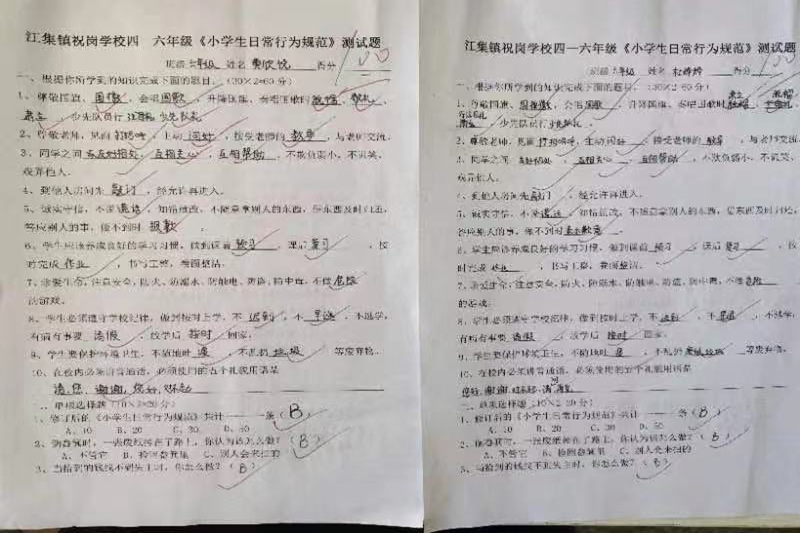 江集镇祝岗学校四 六年级《小学生日常行为规范》测试题
班级 六年级 姓名 得分 100
一、根据你所学到的知识完成下面的题目。(30×2=60分)
1、尊敬国旗、国徽，会唱国歌，升降国旗、奏唱国歌时敬礼、
肃立，少先队员行 少先队礼
2、尊敬老师，见面打招呼，主动问好，接受老师的教导，与老师交流。
3、同学之间友好相处，互相关心，互相帮助，不欺负弱小，不讥笑、
戏弄他人。
4、到他人房间先敲门，经允许再进入，
5、诚实守信，不说谎话，知错就改，不随意拿别人的东西，借东西及时归还，
答应别人的事，做不到时 道歉。
6、学生应该养成良好的学习习惯，做到课前预习，课后复习，按
时完成作业，书写工整，卷面整洁。
7、珍爱生命，注意安全，防火、防溺水、防触电、防盗、防中毒，不做危险
的游戏。
8、学生必须遵守学校纪律，做到按时上学，不迟到，不早退，不逃学，
有病有事要请假，放学后按时回家。
9、学生要保护环境卫生，不随地吐痰，不乱扔垃圾等废弃物。
10、在校内必须讲普通话，必须使用的五个礼貌用语是
请，您，谢谢，您好，对不起
二、单项选择题（10×2=20分）
1、修订后的《小学生日常行为规范》共计——条（B）
A、10 B、20 C、30 D、50
2、倘若就时，一张废纸掉在了路上，你认为该怎么做?（B）
A、不管它 B、捡到卷箕里 C、别人会来扫的
3、当拾到的钱找不到失主时，你怎么做?（B）
江集镇祝岗学校四—六年级《小学生日常行为规范》测试题
班级 六年级 姓名 得分 100
一、根据你所学到的知识完成下面的题目。(30×2=60分)
1、尊敬国旗、国徽，会唱国歌，升降国旗、奏唱国歌时
，少先队员行少先队礼
2、尊敬老师，见面打招呼，主动问好，接受老师的教导，与老师交流。
3、同学之间友好相处，互相关心，互相帮助，不欺负弱小，不讥笑、
戏弄他人。
4、到他人房间先敲门，经允许再进入，
5、诚实守信，不说谎话，知错就改，不随意拿别人的东西，借东西及时归还，
答应别人的事，做不到时表示歉意。
6、学生应该养成良好的学习习惯，做到课前预习，课后复习，按
时完成作业，书写工整，卷面整洁。
7、珍爱生命，注意安全，防火、防溺水、防触电、防盗、防中毒，不做危险
的游戏。
8、学生必须遵守学校纪律，做到按时上学，不迟到，不早退，不逃学，
有病有事要请假，放学后按时回家。
9、学生要保护环境卫生，不随地吐痰，不乱扔 垃圾等废弃物。
10、在校内必须讲普通话，必须使用的五个礼貌用语是
您好，谢谢，对不起，请
二、单项选择题（10×2=20分）
1、修订后的《小学生日常行为规范》共计——条（B）
A、10 B、20 C、30 D、50
一张废纸掉在了路上，你认为该怎么做?（B）
A、不管它 B、捡到卷箕里 C、别人会来扫的
3、当拾到的钱找不到失主时，你怎么做?（B）